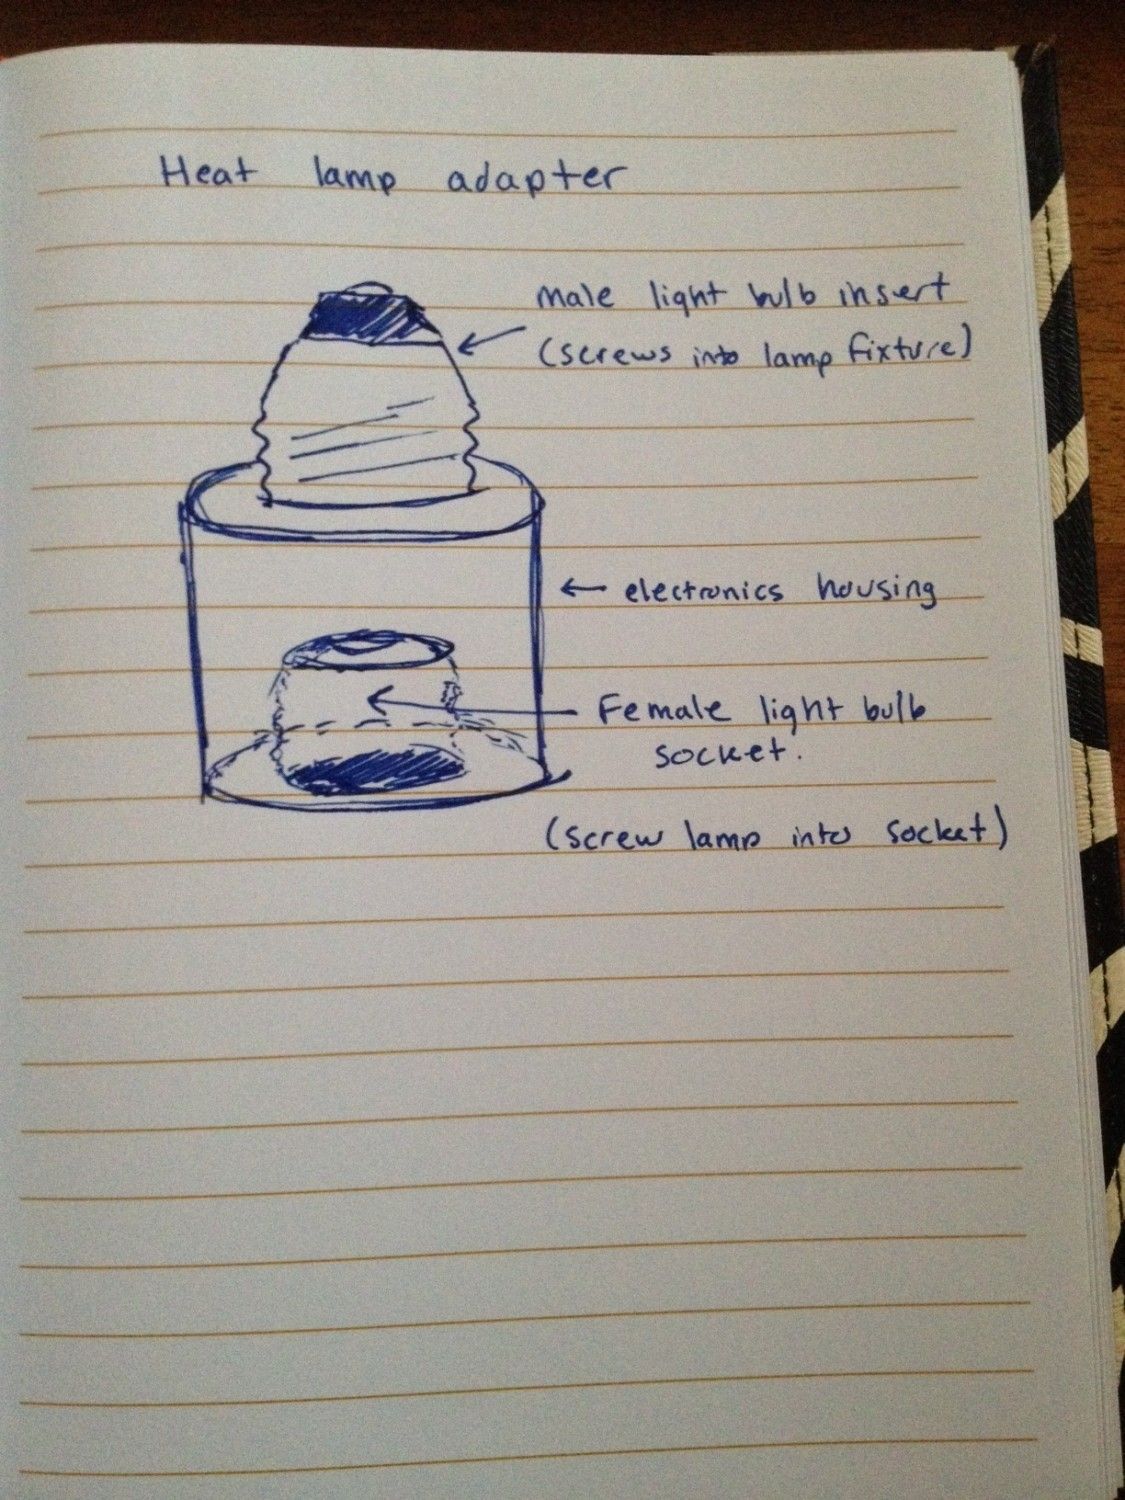 Heat lamp adapter
male light bulb insert
(screws into lamp fixture)
electronics housing
Female light bulb
socket.
(screw lamp into socket)